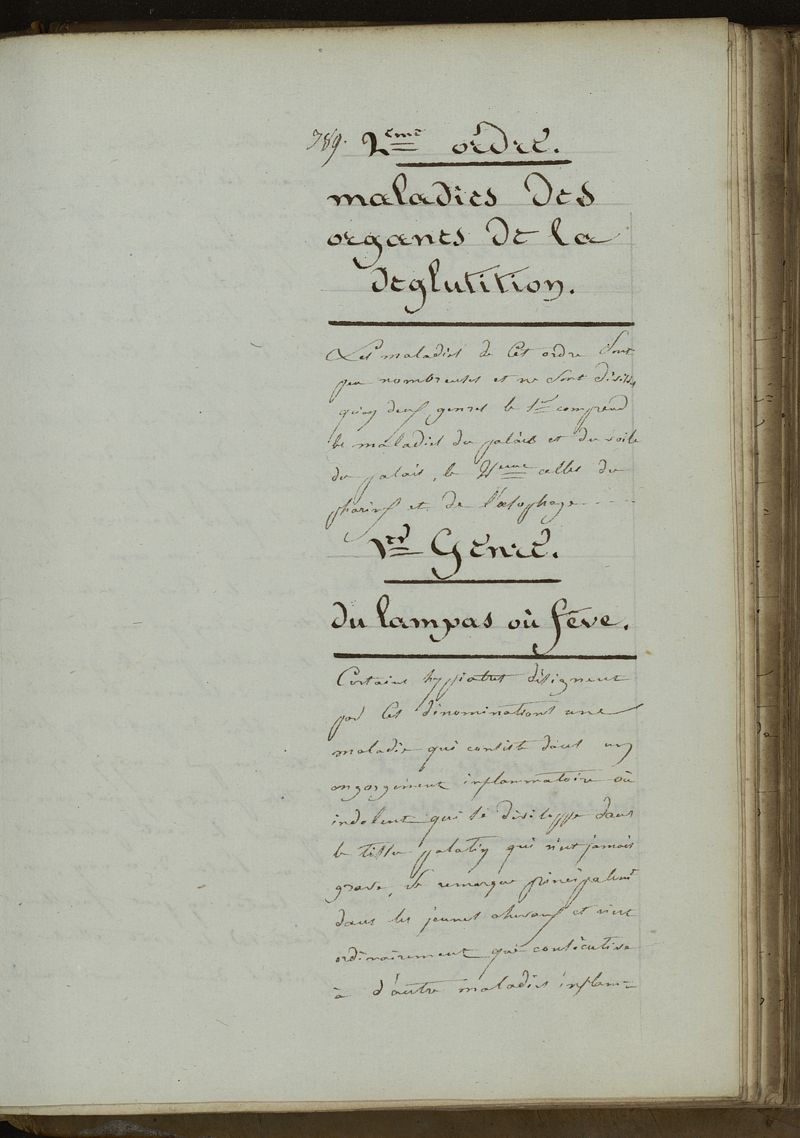 789. 2ème ordre.
maladies des
organes de la
deglutition.
Les maladies de cet ordre sont
peu nombreuses et ne sont divisés
qu'en deux genres le 1er comprend
les maladies du palais et du voile
du palais, le 2ème celles du
pharinx et de l'œsophage
1er Genre.
du lampas où fève.
Certains hyppiatres désignent
par ces dénominations une
maladie qui consiste dans un
engorgement inflammatoire où
indolent qui se développe dans
le tissu palatin qui n'est jamais
grave, se remarque principalemt
dans les jeunes chevaux et n'est
ordinairement que consécutive
à d'autre maladies inflam=